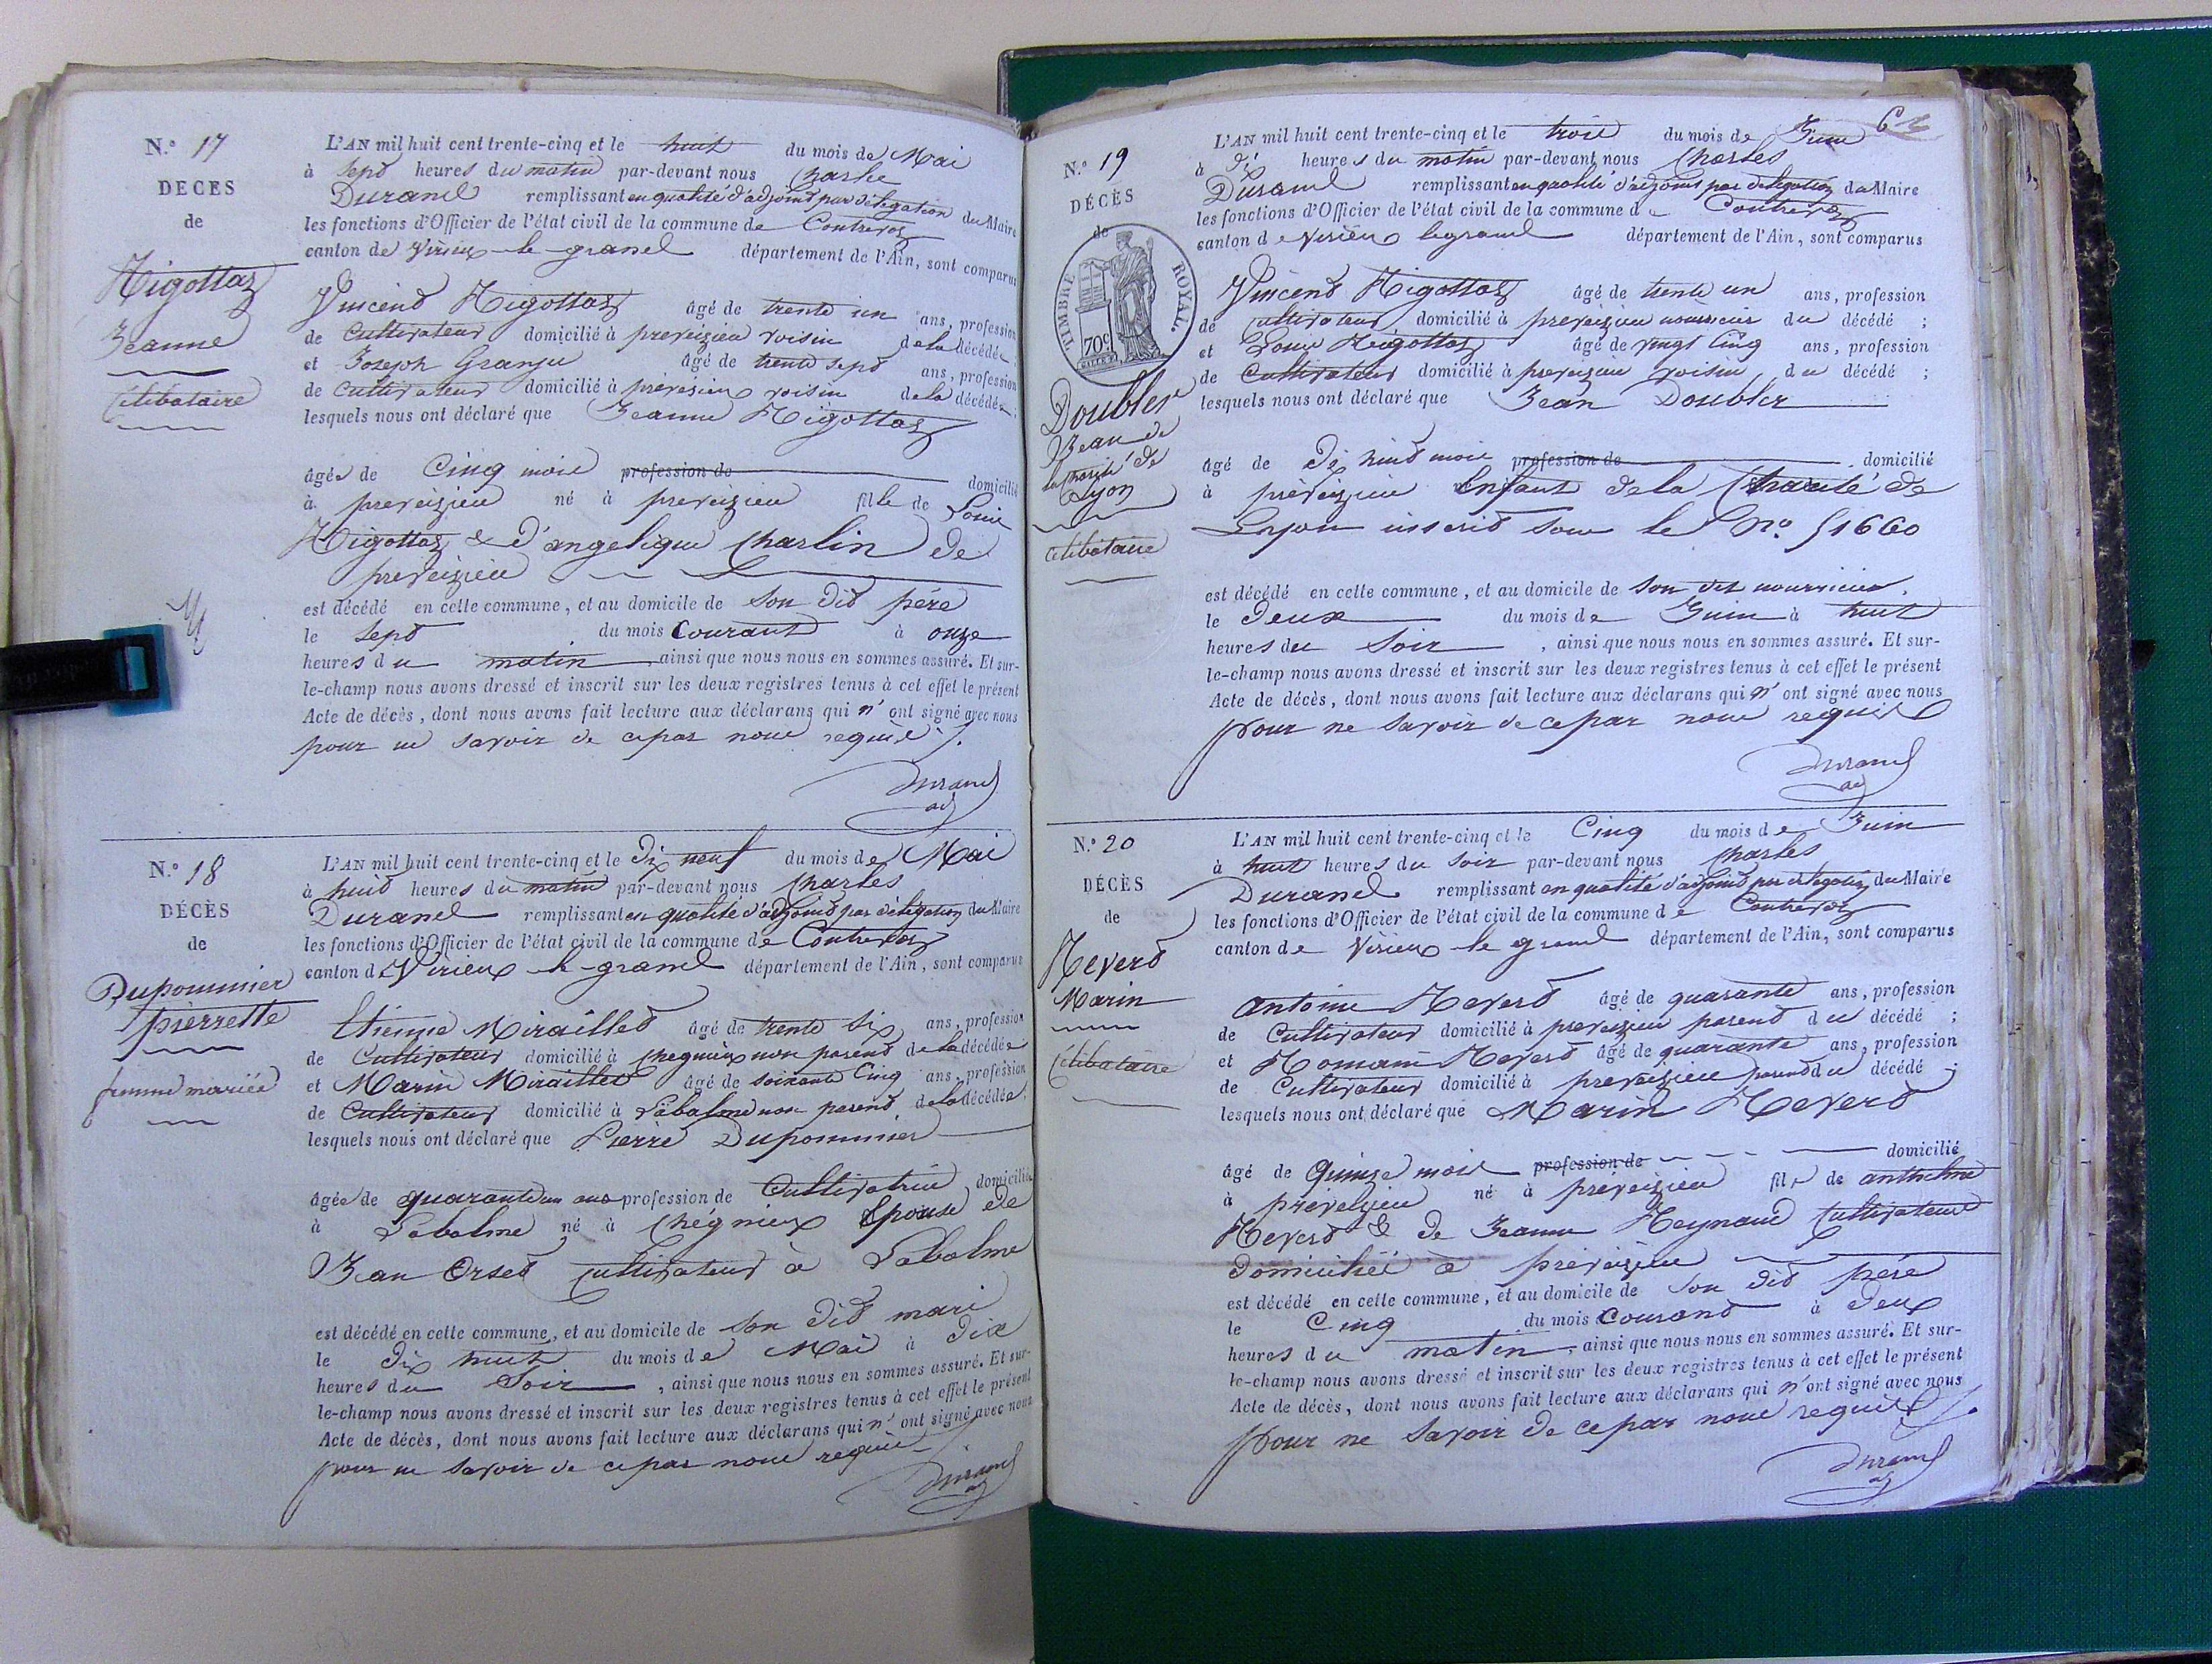 N.° 17
DECES
de
Rigottaz
Jeanne
célibataire
L'AN mil huit cent trente-cinq et le huit du mois de Mai
à sept heures du matin par-devant nous Charles
Durand remplissant en qualité d'adjoint par délégation du Maire
les fonctions d'Officier de l'état civil de la commune de Contrevoz
canton de Virieux-le-grand département de l'Ain, sont comparus
Vincend Rigottaz âgé de trente un ans, profession
de cultivateur domicilié à preveizieu voisin de la décédée
et Joseph Granju âgé de trente sept ans, profession
de cultivateur domicilié à preveisieu voisin de la décédée;
lesquels nous ont déclaré que Jeanne Rigottaz
âgée de Cinq mois profession de domicilié
à preveizieu né à preveizieu fille de Louis
Rigottaz & d'angelique Charlin de
preveizieu
est décédé en cette commune, et au domicile de son dit père
le sept du mois Courant à onze
heures du matin, ainsi que nous nous en sommes assuré. Et sur-
le-champ nous avons dressé et inscrit sur les deux registres tenus à cet effet le présent
Acte de décès, dont nous avons fait lecture aux déclarans qui n'ont signé avec nous
pour ne savoir de ce par nous requis
Durand
adj
N.° 18
DÉCÈS
de
Dupommier
pierrette
femme mariée
L'AN mil huit cent trente-cinq et le dix neuf du mois de Mai
à huit heures du matin par-devant nous Charles
Durand remplissant en qualité d'adjoint par délégation du Maire
les fonctions d'Officier de l'état civil de la commune de Contrevoz
canton de Virieux-le-grand département de l'Ain, sont comparus
Etienne Miraillet âgé de trente six ans, profession
de Cultivateur domicilié à Chegnieux non parend de la décédée
et Marin Miraillet âgé de soixante Cinq ans, profession
de Cultivateur domicilié à Labalme non parend de la décédée;
lesquels nous ont déclaré que Pierre Dupommier
âgée de quarante un ans profession de Cultivatrice domiciliée
à Labalme né à Chégnieux Epouse de
Jean Orset cultivateur à Labalme
est décédé en cette commune, et au domicile de son dit mari
le dix huit du mois de Mai à dix
heures du Soir, ainsi que nous nous en sommes assuré. Et sur-
le-champ nous avons dressé et inscrit sur les deux registres tenus à cet effet le présent
Acte de décès, dont nous avons fait lecture aux déclarans qui n'ont signé avec nous
pour ne savoir de ce par nous requis
Durand
adj
N.° 19
DÉCÈS
de
TIMBRE ROYAL.
70c
Doubler
Jean de
la Charité de
Lyon
célibataire
L'AN mil huit cent trente-cinq et le trois du mois de Juin
à dix heures du matin par-devant nous Charles
Durand remplissant en qualité d'adjoint par délégation du Maire
les fonctions d'Officier de l'état civil de la commune de Contrevoz
canton de Virieux legrand département de l'Ain, sont comparus
Vincend Rigottaz âgé de trente un ans, profession
de cultivateur domicilié à preveizieu nourricier du décédé;
et Louis Rigottaz âgé de vingt Cinq ans, profession
de Cultivateur domicilié à preveizieu voisin du décédé;
lesquels nous ont déclaré que Jean Doubler
âgé de dix huit mois profession de domicilié
à prèveizieu Enfant de la Charité de
Lyon inscrid sous le No. 51660
est décédé en cette commune, et au domicile de son dit nourricier.
le Deux du mois de Juin à huit
heures du Soir, ainsi que nous nous en sommes assuré. Et sur-
le-champ nous avons dressé et inscrit sur les deux registres tenus à cet effet le présent
Acte de décès, dont nous avons fait lecture aux déclarans qui n'ont signé avec nous
pour ne savoir de ce par nous requis
Durand
adj
N.° 20
DÉCÈS
de
Reverd
Marin
Célibataire
L'AN mil huit cent trente-cinq et le Cinq du mois de Juin
à huit heures du soir par-devant nous Charles
Durand remplissant en qualité d'adjoind par délégation du Maire
les fonctions d'Officier de l'état civil de la commune de Contrevoz
canton de Virieux-le grand département de l'Ain, sont comparus
antoine Reverd âgé de quarante ans, profession
de Cultivateur domicilié à preveizieu parend du décédé;
et Romain Reverd âgé de quarante ans, profession
de Cultivateur domicilié à preveizieu parend du décédé;
lesquels nous ont déclaré que Marin Reverd
âgé de Quinze mois profession de domicilié
à préveizieu né à préveizieu fils de anthelme
Reverd & de Jeanne Reynaud Cultivateurs
domiciliés à préveizieu
est décédé en cette commune, et au domicile de son did père
le Cinq du mois Courand à deux
heures du matin, ainsi que nous nous en sommes assuré. Et sur-
le-champ nous avons dressé et inscrit sur les deux registres tenus à cet effet le présent
Acte de décès, dont nous avons fait lecture aux déclarans qui n'ont signé avec nous
pour ne savoir de ce par nous requis
Durand
adj